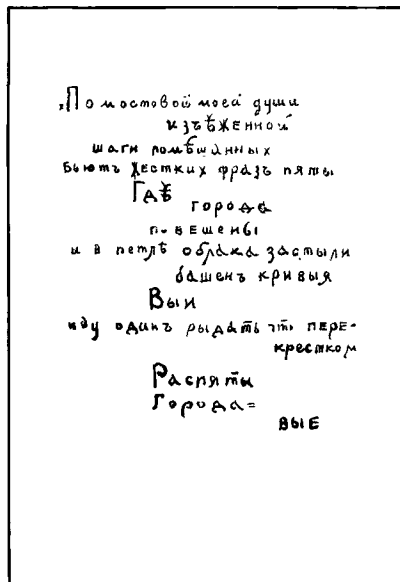 „По мостовой моей души
изъѣженной
шаги помѣшанных
бьютъ жестких фразъ пяты
Гдѣ
города
повешены
и в петлѣ облака застыли
башенъ кривыя
Выи
иду один рыдать что пере-
крестком
Распяты
Города=
вые